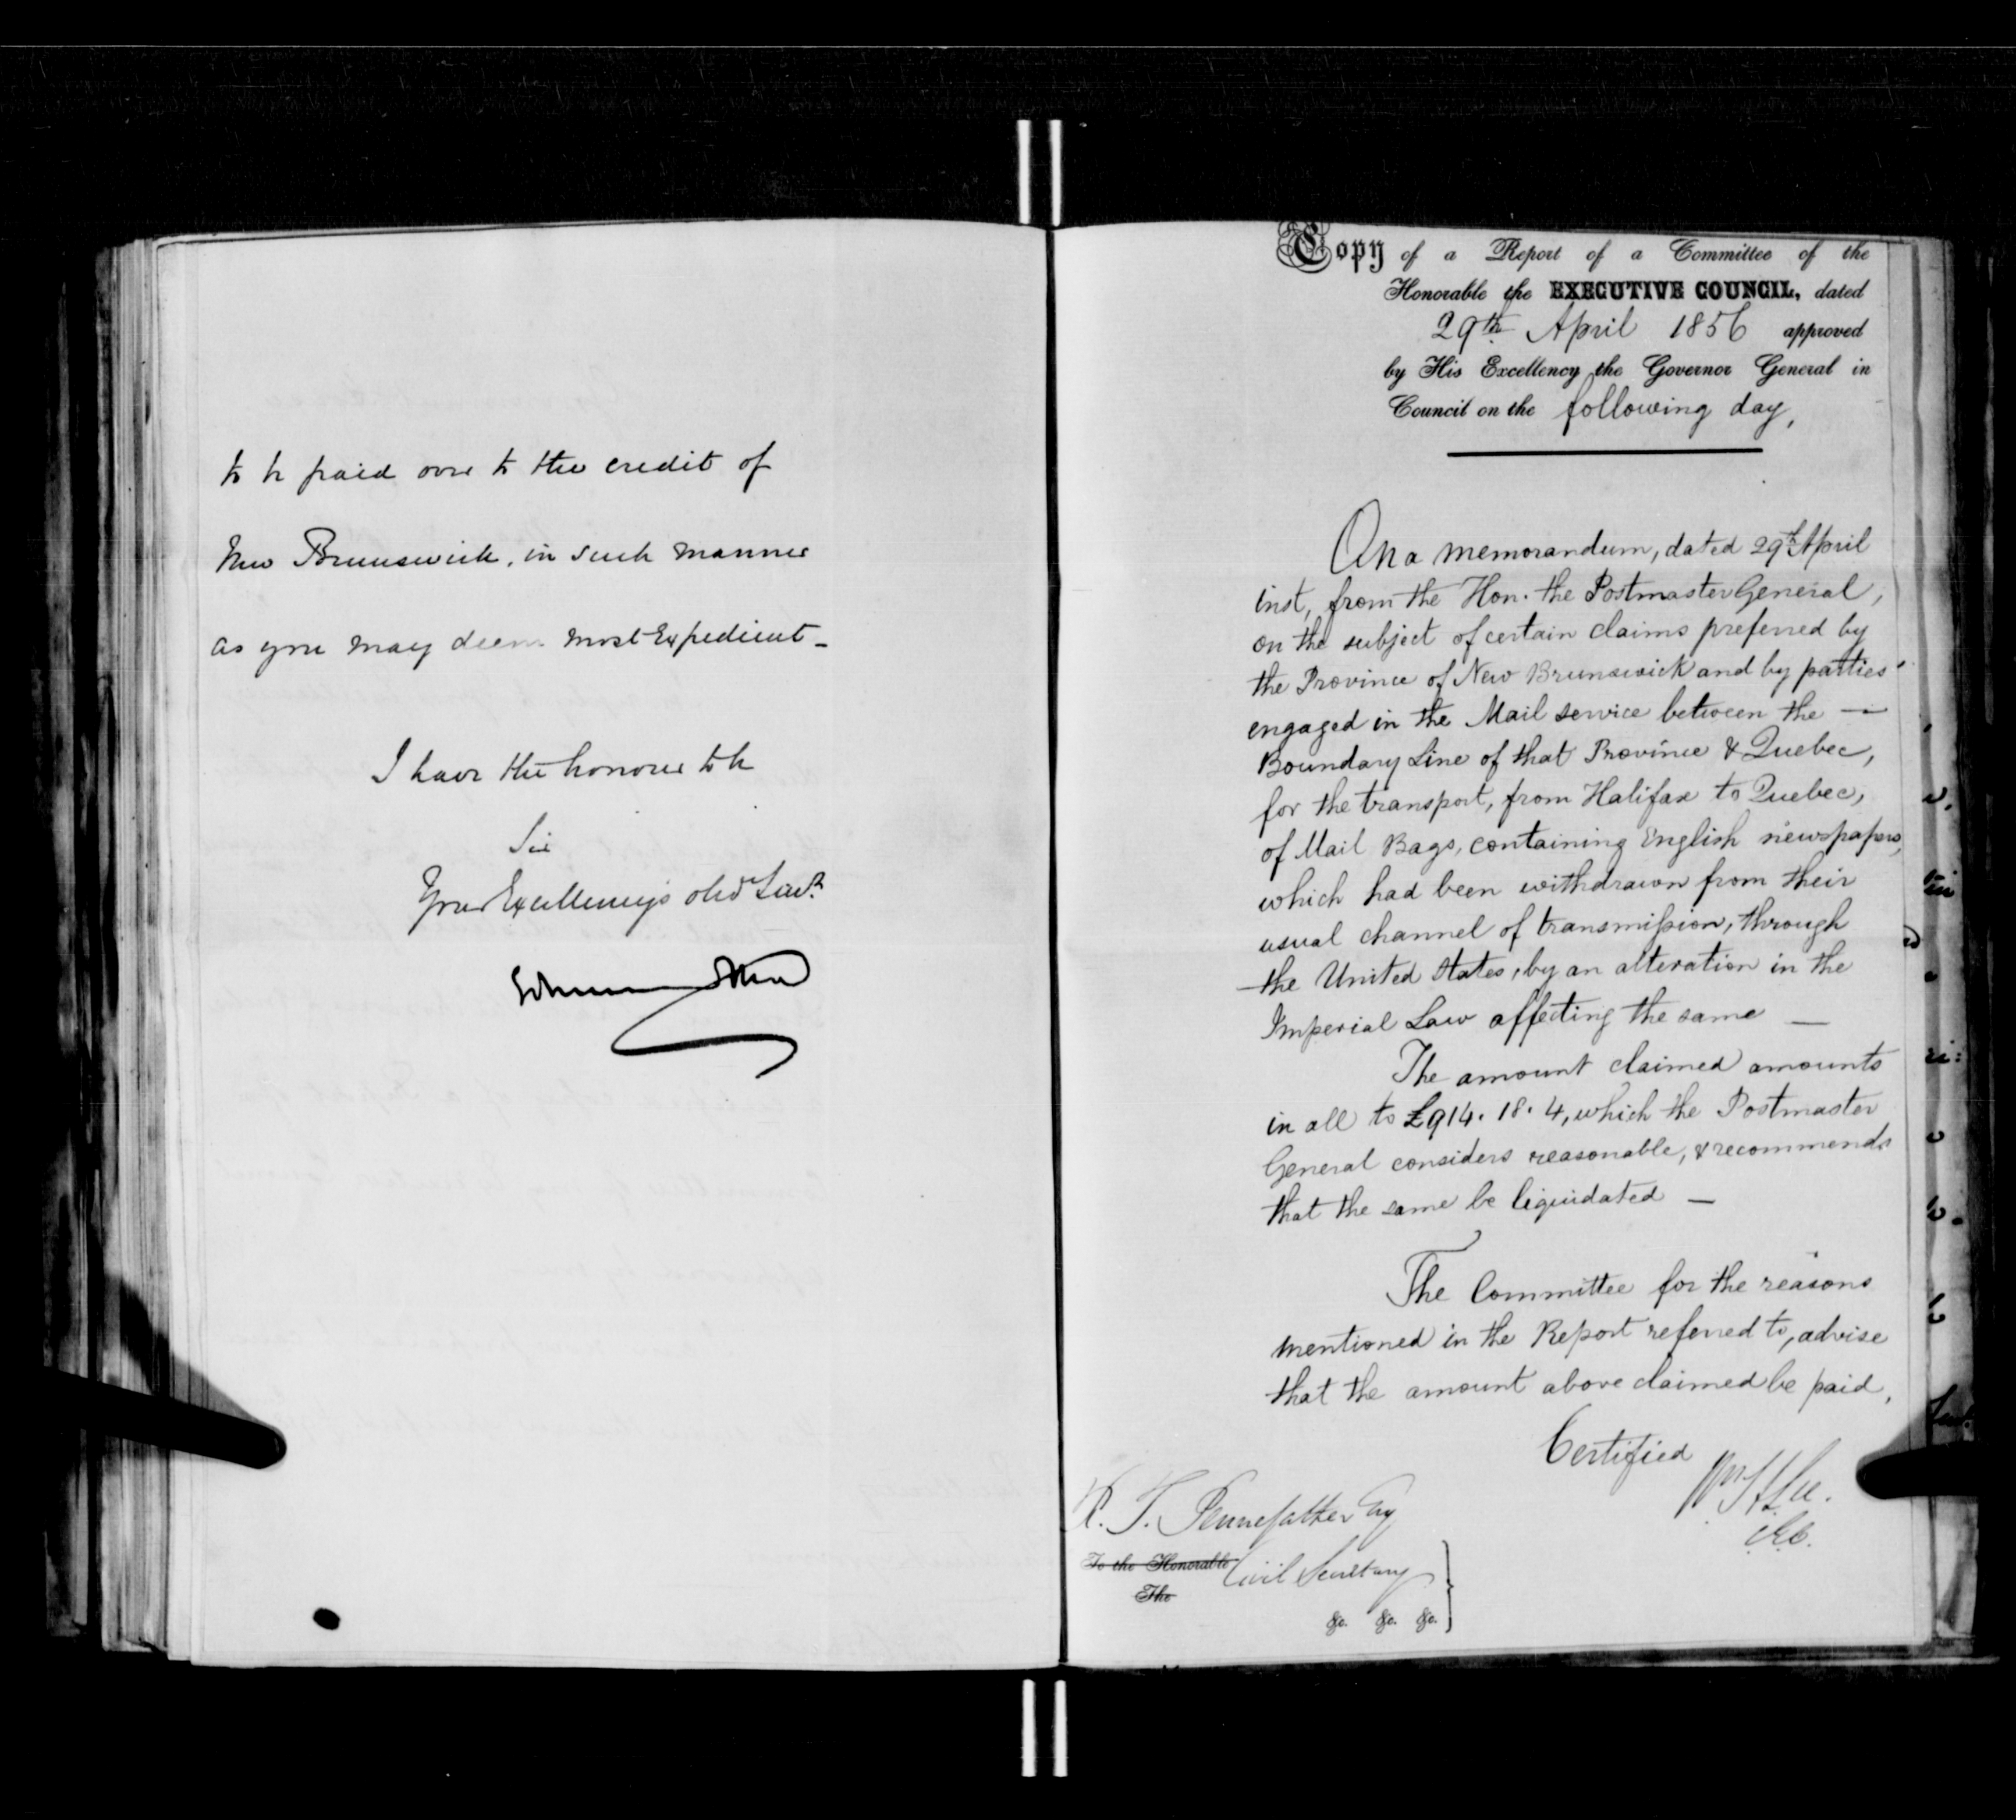 to be paid over to the credit of
New Brunswick, in such manner
as you may deem most Expedient -
I have the honour to be
Sir
Your Excellency's obdt Servt
Edmund Head
Copy of a Report of a Committee of the
Honorable the EXECUTIVE COUNCIL, dated
29th April 1856 approved
by His Excellency the Governor General in
Council on the following day,
On a memorandum, dated 29th April
inst, from the Hon. the Postmaster General,
on the subject of certain claims preferred by
the Province of New Brunswick and by parties
engaged in the Mail service between the —
Boundary Line of that Province & Quebec,
for the transport, from Halifax to Quebec,
of Mail Bags, containing English newspapers,
which had been withdrawn from their
usual channel of transmission, through
the United States, by an alteration in the
Imperial Law affecting the same —
The amount claimed amounts
in all to £914. 18. 4, which the Postmaster
General considers reasonable, & recommends
that the same be liquidated —
The Committee for the reasons
mentioned in the Report referred to, advise
that the amount above claimed be paid,
Certified
Wm H Lee.
C.E.C.
R. T. Pennefather Esq
To the Honorable Civil Secretary
The
&c. &c. &c.